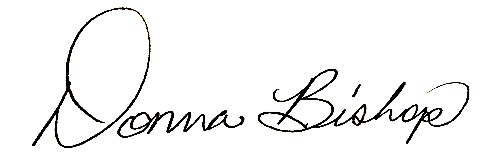 Donna Bishop